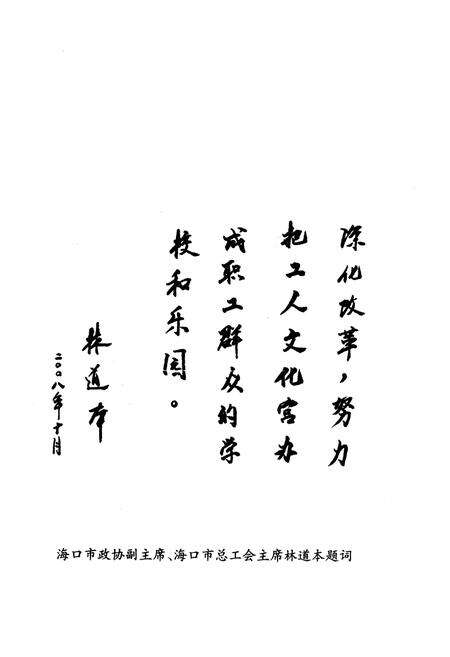 深化改革，努力
把工人文化宫办
成职工群众的学
校和乐园。
林道本
二〇〇八年十月
海口市政协副主席、海口市总工会主席林道本题词